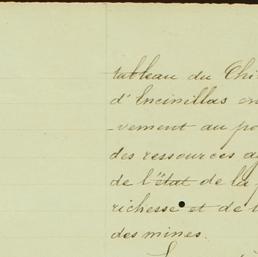 tableau du Chi
d'Encinillas en
-vement au po
des ressources a
de l'état de la
richesse et de l
des mines.